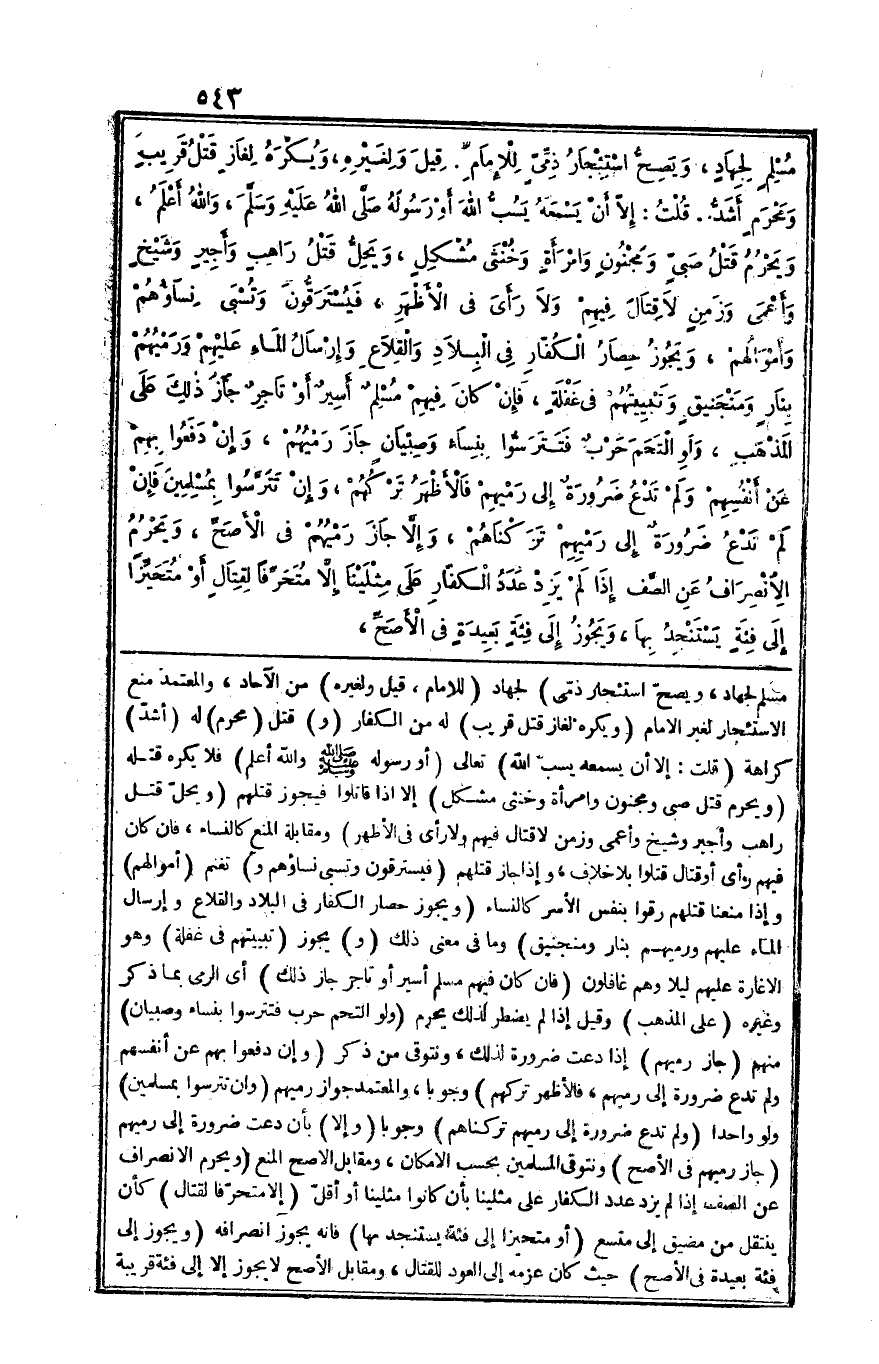 ٥٤٣
مُسْلِمٍ لِجِهَادٍ ، وَيَصِحُّ اسْتِئْجَارُ ذِمِّىٍّ لِلْإِمَامِ . قِيلَ وَلِغَيْرِهِ ، وَيُكْرَهُ لِغَازٍ قَتْلُ قَرِيبٍ
وَمَحْرَمٍ أَشَدُّ . قُلْتُ : إِلاَّ أَنْ يَسْمَعَهُ يَسُبُّ اللهَ أَوْ رَسُولَهُ صَلَّى اللهُ عَلَيْهِ وَسَلَّمَ ، وَاللهُ أَعْلَمُ ،
وَيَحْرُمُ قَتْلُ صَبِىٍّ وَمَجْنُونٍ وَامْرَأَةٍ وَخُنْثَى مُشْكِلٍ ، وَيَحِلُّ قَتْلُ رَاهِبٍ وَأَجِيرٍ وَشَيْخٍ
وَأَعْمَى وَزَمِنٍ لاَ قِتَالَ فِيهِمْ وَلاَ رَأْىَ فى الْأَظْهَرِ ، فَيُسْتَرَقُّونَ وَتُسْبَى نِسَاؤُهُمْ
وَأَمْوَالُهُمْ ، وَيَجُوزُ حِصَارُ الْكُفَّارِ فِى الْبِلاَدِ وَالْقِلاَعِ وَإِرْسَالُ الْمَاءِ عَلَيْهِمْ وَرَمْيُهُمْ
بِنَارٍ وَمَنْجَنِيقٍ وَتَبْيِيتُهُمْ فى غَفْلَةٍ ، فَإِنْ كَانَ فِيهِمْ مُسْلِمٌ أَسِيرٌ أَوْ تَاجِرٌ جَازَ ذٰلِكَ عَلَى
الْمَذْهَبِ ، وَلَوِ الْتَحَمَ حَرْبٌ فَتَتَرَّسُوا بِنِسَاءٍ وَصِبْيَانٍ جَازَ رَمْيُهُمْ ، وَإِنْ دَفَعُوا بِهِمْ
عَنْ أَنْفُسِهِمْ وَلَمْ تَدْعُ ضَرُورَةٌ إِلَى رَمْيِهِمْ فَالْأَظْهَرُ تَرْكُهُمْ ، وَإِنْ تَتَرَّسُوا بِمُسْلِمِينَ فَإِنْ
لَمْ تَدْعُ ضَرُورَةٌ إِلَى رَمْيِهِمْ تَرَكْنَاهُمْ ، وَإِلَّا جَازَ رَمْيُهُمْ فى الْأَصَحِّ ، وَيَحْرُمُ
الِانْصِرَافُ عَنِ الصَّفِّ إِذَا لَمْ يَزِدْ عَدَدُ الْكُفَّارِ عَلَى مِثْلَيْنَا إِلَّا مُتَحَرِّفًا لِقِتَالٍ أَوْ مُتَحَيِّزًا
إِلَى فِئَةٍ يَسْتَنْجِدُ بِهَا ، وَيَجُوزُ إِلَى فِئَةٍ بَعِيدَةٍ فى الْأَصَحِّ ،
مسلم لجهاد ، ويصح استئجار ذمى ) لجهاد ( للامام ، قيل ولغيره ) من الآحاد ، والمعتمد منع
الاستئجار لغير الامام ( ويكره لغاز قتل قريب ) له من الكفار ( و ) قتل ( محرم ) له ( أشدّ )
كراهة ( قلت : إلا أن يسمعه يسب الله ) تعالى ( أو رسوله ﷺ والله أعلم ) فلا يكره قتله
( ويحرم قتل صبى ومجنون وامرأة وخنثى مشكل ) إلا اذا قاتلوا فيجوز قتلهم ( ويحلّ قتل
راهب وأجير وشيخ وأعمى وزمن لا قتال فيهم ولا رأى فى الأظهر ) ومقابلة المنع كالنساء ، فان كان
فيهم رأى أو قتال قتلوا بلا خلاف ، وإذا جاز قتلهم ( فيسترقون وتسبى نساؤهم و ) تغنم ( أموالهم )
وإذا منعنا قتلهم رقوا بنفس الأسر كالنساء ( ويجوز حصار الكفار فى البلاد والقلاع وإرسال
الماء عليهم ورميهم بنار ومنجنيق ) وما فى معنى ذلك ( و ) يجوز ( تبييتهم فى غفلة ) وهو
الاغارة عليهم ليلا وهم غافلون ( فان كان فيهم مسلم أسير أو تاجر جاز ذلك ) أى الرمى بما ذكر
وغيره ( على المذهب ) وقيل إذا لم يضطر لذلك يحرم ( ولو التحم حرب فتترسوا بنساء وصبيان )
منهم ( جاز رميهم ) إذا دعت ضرورة لذلك ، ونتوقى من ذكر ( وإن دفعوا بهم عن أنفسهم
ولم تدع ضرورة إلى رميهم ، فالأظهر تركهم ) وجوبا ، والمعتمد جواز رميهم ( وان تترسوا بمسلمين )
ولو واحدا ( ولم تدع ضرورة إلى رميهم تركناهم ) وجوبا ( وإلا ) بأن دعت ضرورة إلى رميهم
( جاز رميهم فى الأصح ) ونتوقى المسلمين بحسب الامكان ، ومقابل الاصح المنع ( ويحرم الانصراف
عن الصف إذا لم يزد عدد الكفار على مثلينا بأن كانوا مثلينا أو أقلّ ( إلا متحرّفا لقتال ) كأن
ينتقل من مضيق إلى متسع ( أو متحيزا إلى فئة يستنجد بها ) فانه يجوز انصرافه ( ويجوز إلى
فئة بعيدة فى الأصح ) حيث كان عزمه إلى العود للقتال ، ومقابل الأصح لا يجوز إلا إلى فئة قريبة